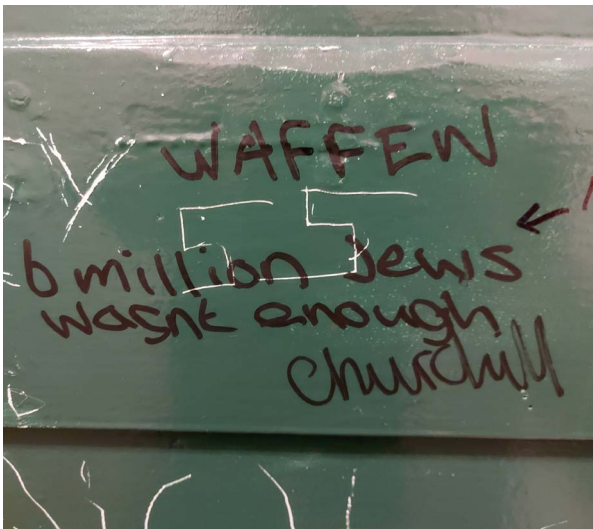 WAFFEN
SS
6 million Jews
wasnt enough
Churchill